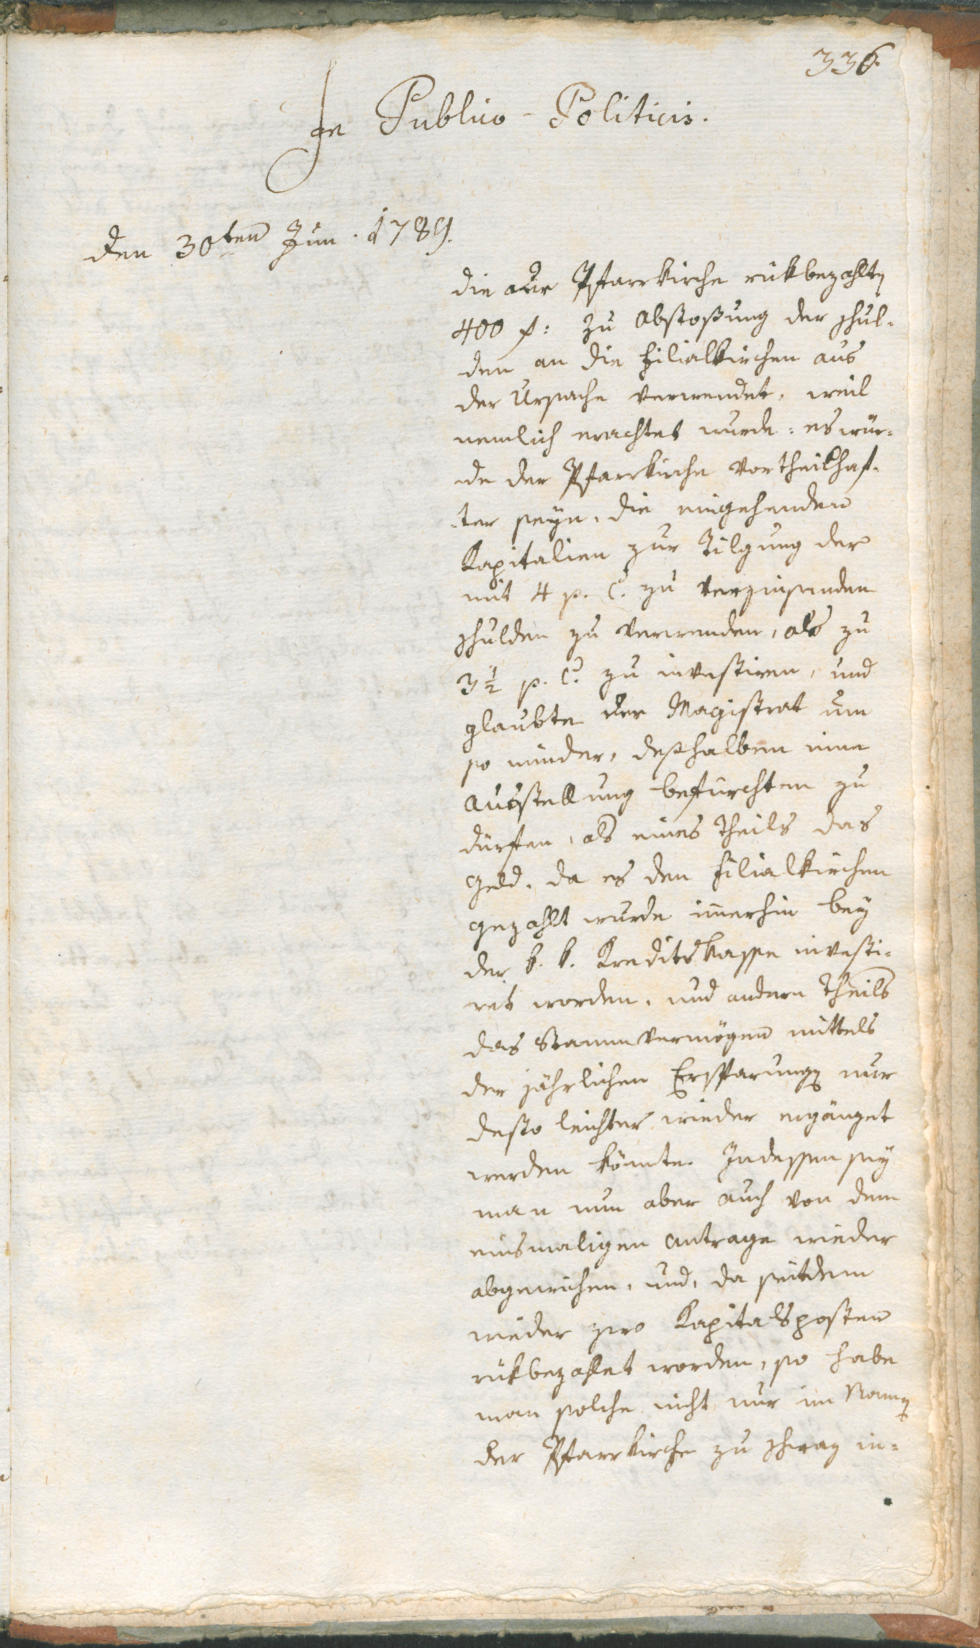 336.
In Publico-Politicis.
Den 30ten Jun. 1789.
die aur Pfarrkirche rükbezahlte
400 f: zu Abstoßung der Schul-
den an die Filialkirchen aus
der Ursache verwendet, weil
nemlich erachtet wurde: es wür-
de der Pfarrkirche vortheilhaf-
ter seyn, die eingehenden
Kapitalien zur Tilgung der
mit 4 p. C. zu verzinsenden
Schulden zu verwenden, als zu
3½ p. C. zu investiren, und
glaubte der Magistrat um
so minder, deßhalben eine
Ausstellung befürchten zu
dürfen, als eines Theils das
Geld, da es den Filialkirchen
gezahlt wurde immerhin bey
der k. k. Kreditskasse investi-
ret worden, und andern Theils
das Stammvermögen mittels
der jährlichen Ersparung nur
desto leichter wieder ergänzet
werden könnte. Indessen sey
man nun aber auch von dem
einsmaligen Antrage wieder
abgewichen, und, da seitdem
wieder zwo Kapitalsposten
rükbezahlet worden, so habe
man solche nicht nur im Namen
der Pfarrkirche zu Schwaz in-